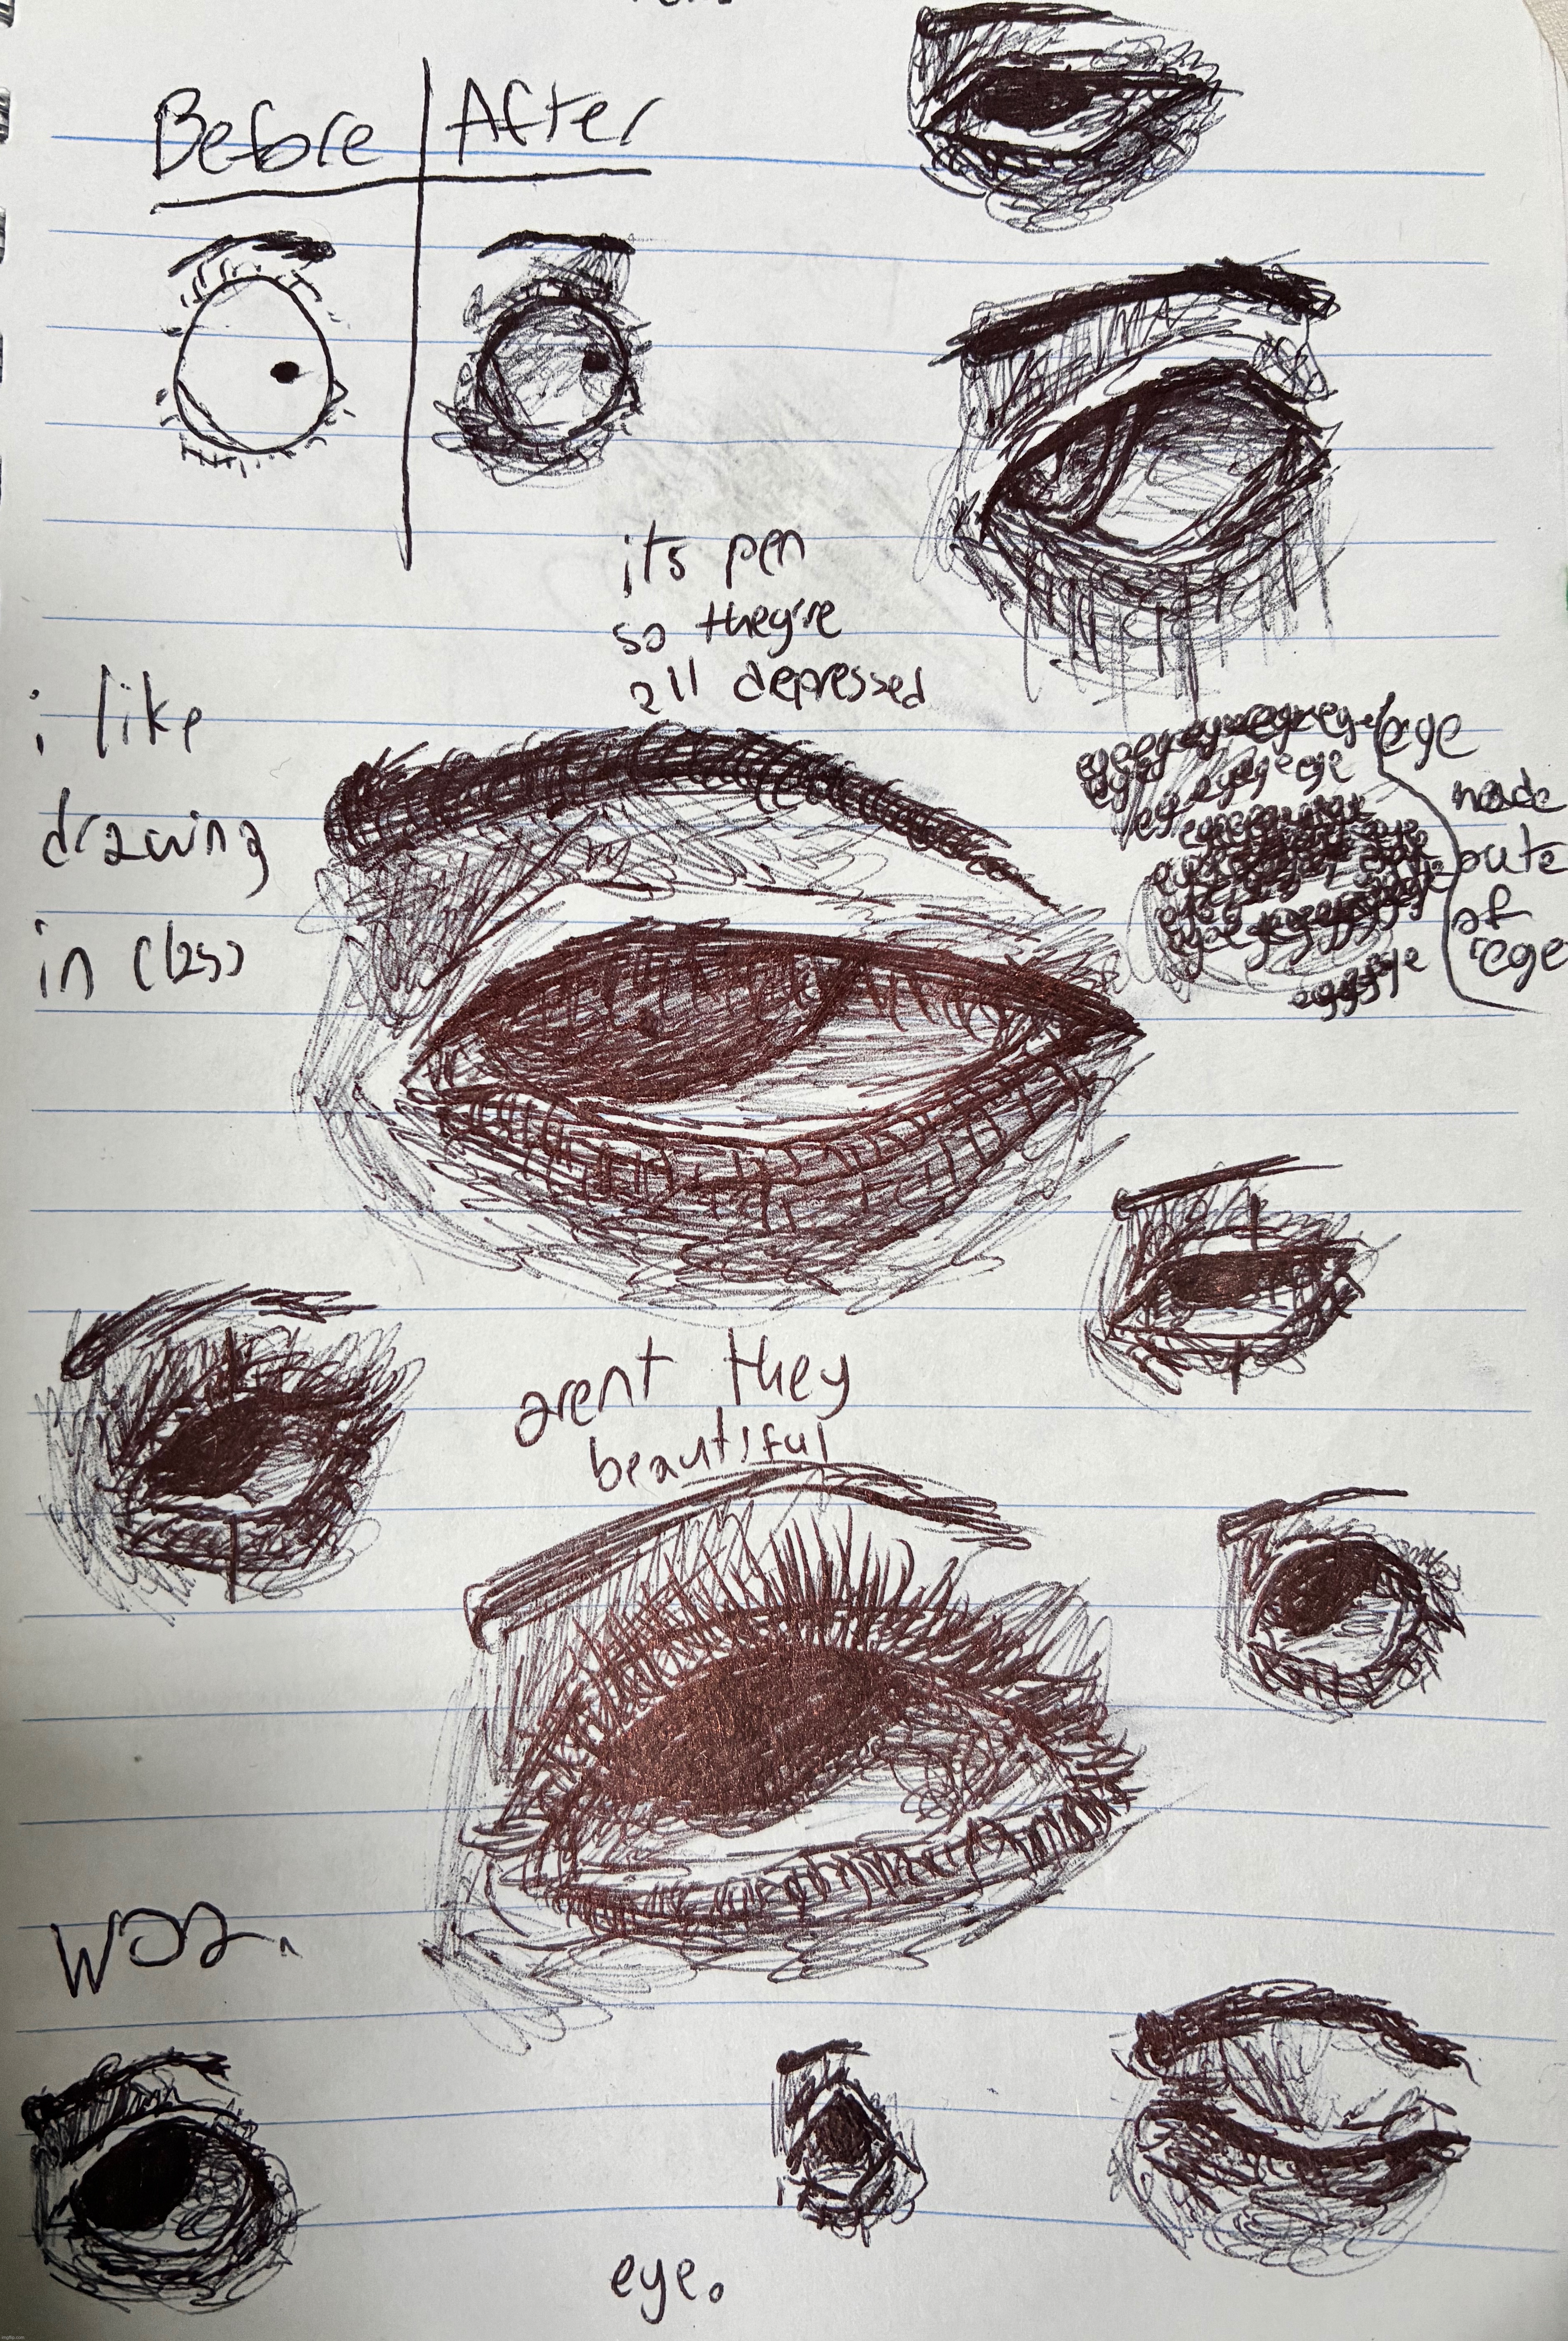 Before | After
its pen
so they're
all depressed
i like
drawing
in class
eye
made
oute
of
eye
arent they
beautiful
woa.
eye.
imgflip.com